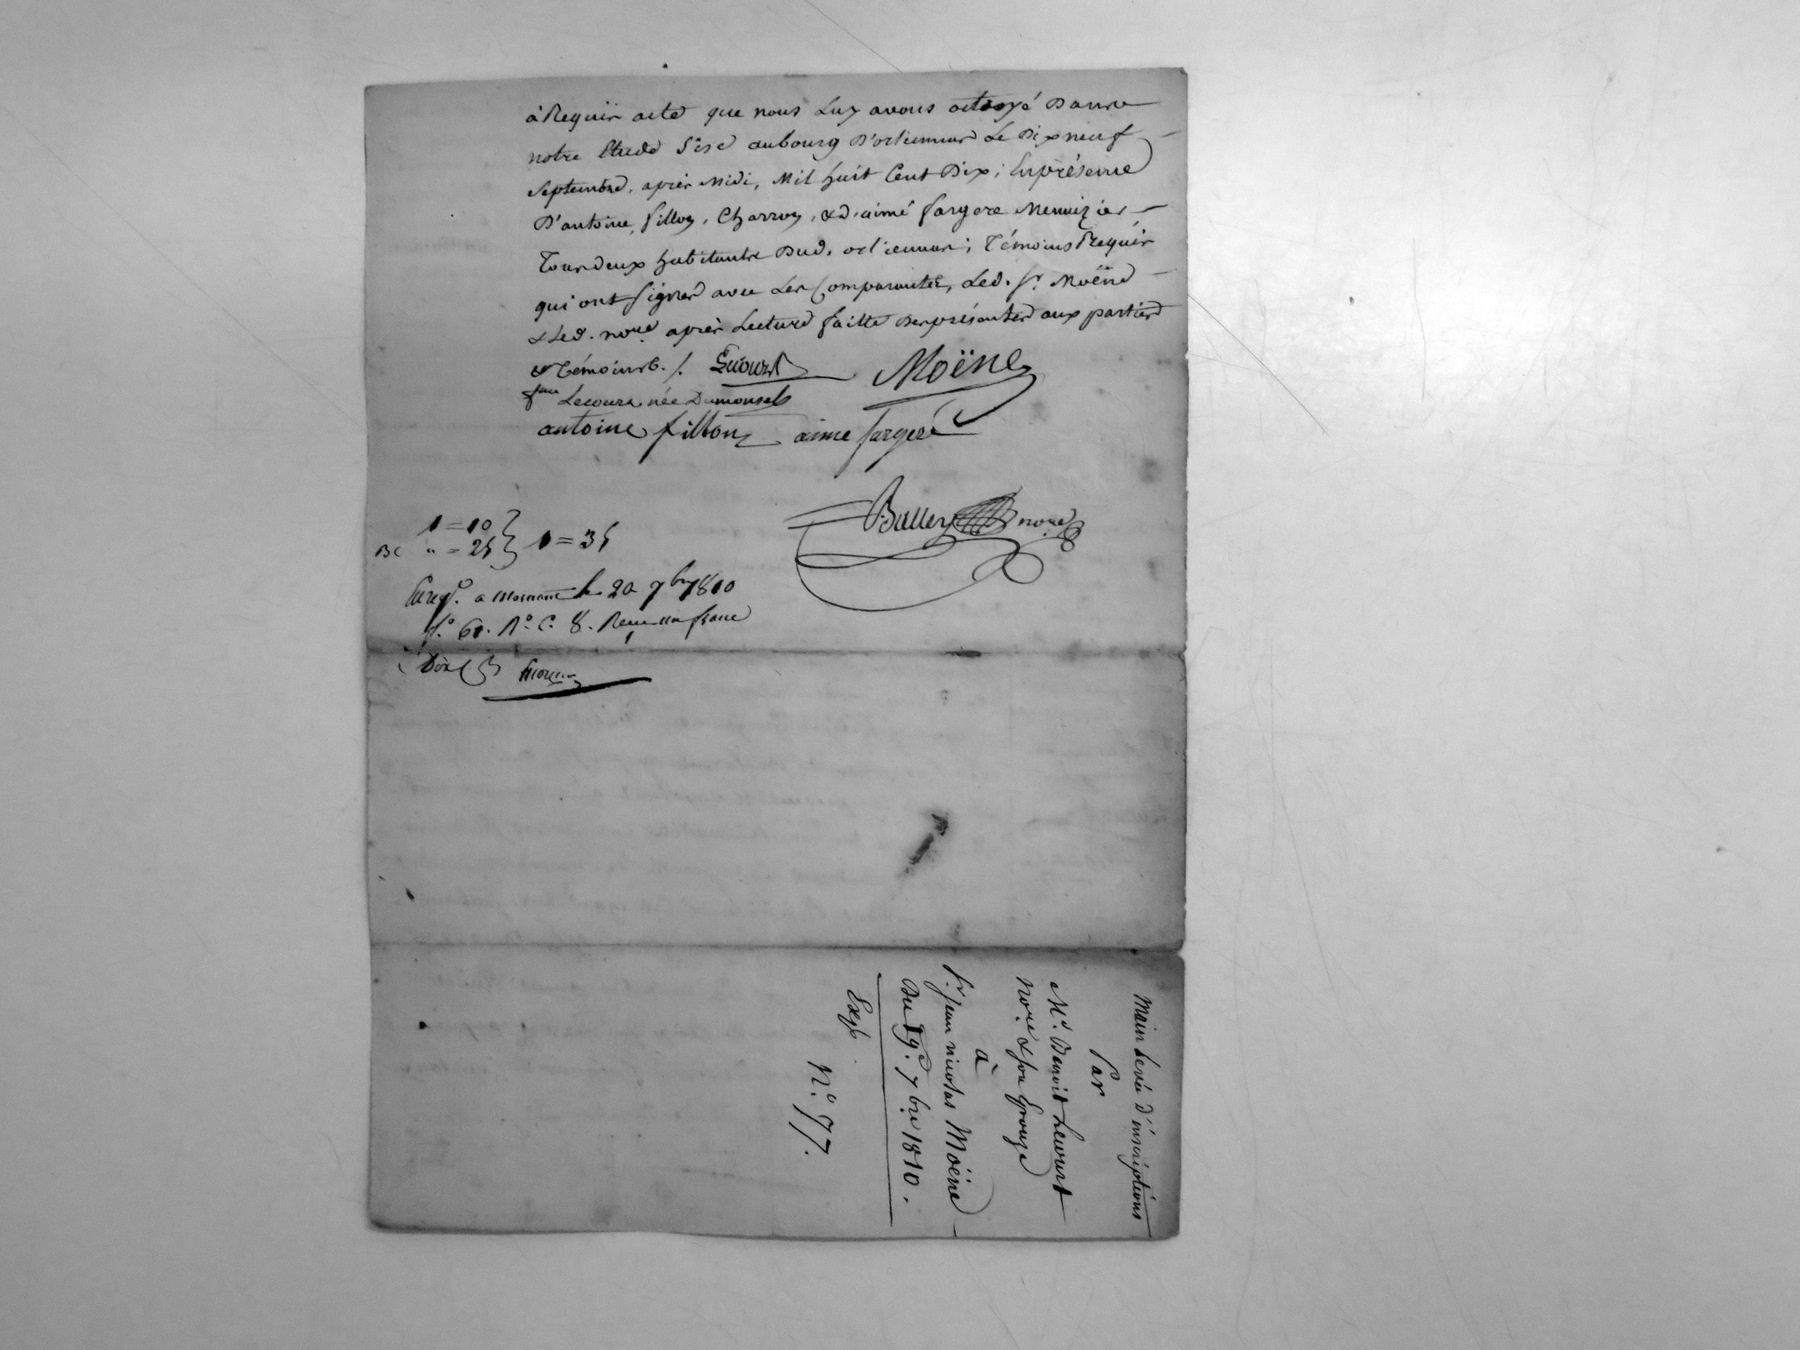 à Requir acte que nous Luy avons octroyé Dans
notre Etude Sise au bourg D'orliennas Le Dix neuf
Septembre, après Midi, Mil huit Cent Dix; En présence
D'antoine fillon, Charron, & d'aimé fargere Menuizier,
Tous deux habitants Dud. orliennas; Témoins Requis
qui ont signés avec Les Comparants, Led. Sr. Moëne
& Led. nore. après Lecture faitte Desprésentes aux parties
& Témoins ./.
Lecourt
Moëne
fme Lecourt née Dumonsel
antoine fillon
aime fargere
nore
1 = 10
BC " = 25
1 = 35
Enregé. a Mornant le 20 7bre 1810
fo. 61. Ro. C. 8. Recu un franc
Dix C
Main Levée d'inscriptions
Par
Me. Benoit Lecourt
Nore. & son Epouze
à
Sr. Jean nicolas Moëne
Du 19e. 7bre 1810.
Exp.
No. 77.